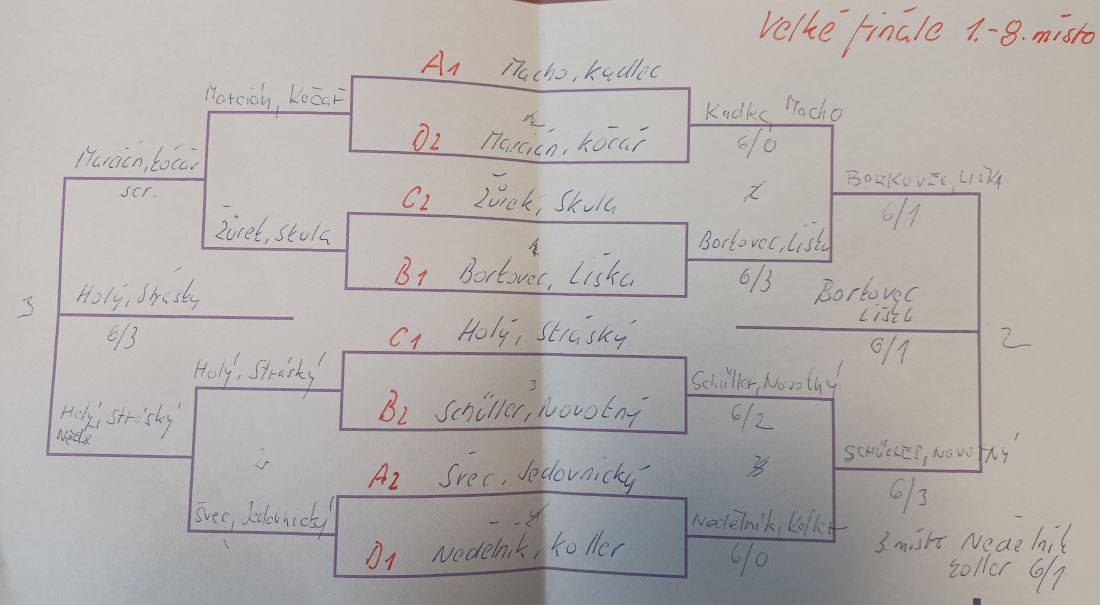 Velké finále 1.-8. místo
A1 Macho, Kadlec
D2 Marcián, Kočař
C2 Žůrek, Skula
B1 Borkovec, Liška
C1 Holý, Stráský
B2 Schüller, Novotný
3
A2 Švec, Jedovnický
D1 Nedělník, Koller
Marcián, Kočař
Žůrek, Skula
Holý, Stráský
2
Švec, Jedovnický
Marcián, Kočař
scr.
Holý, Stráský
3
Holý, Stráský
6/3
Kadlec, Macho
6/0
Borkovec, Liška
6/3
Schüller, Novotný
6/2
Nedělník, Koller
6/0
BORKOVEC, LIŠKA
6/1
SCHÜLLER, NOVOTNÝ
6/3
Borkovec
Liška
6/1
2
3. místo Nedělník
Koller 6/1